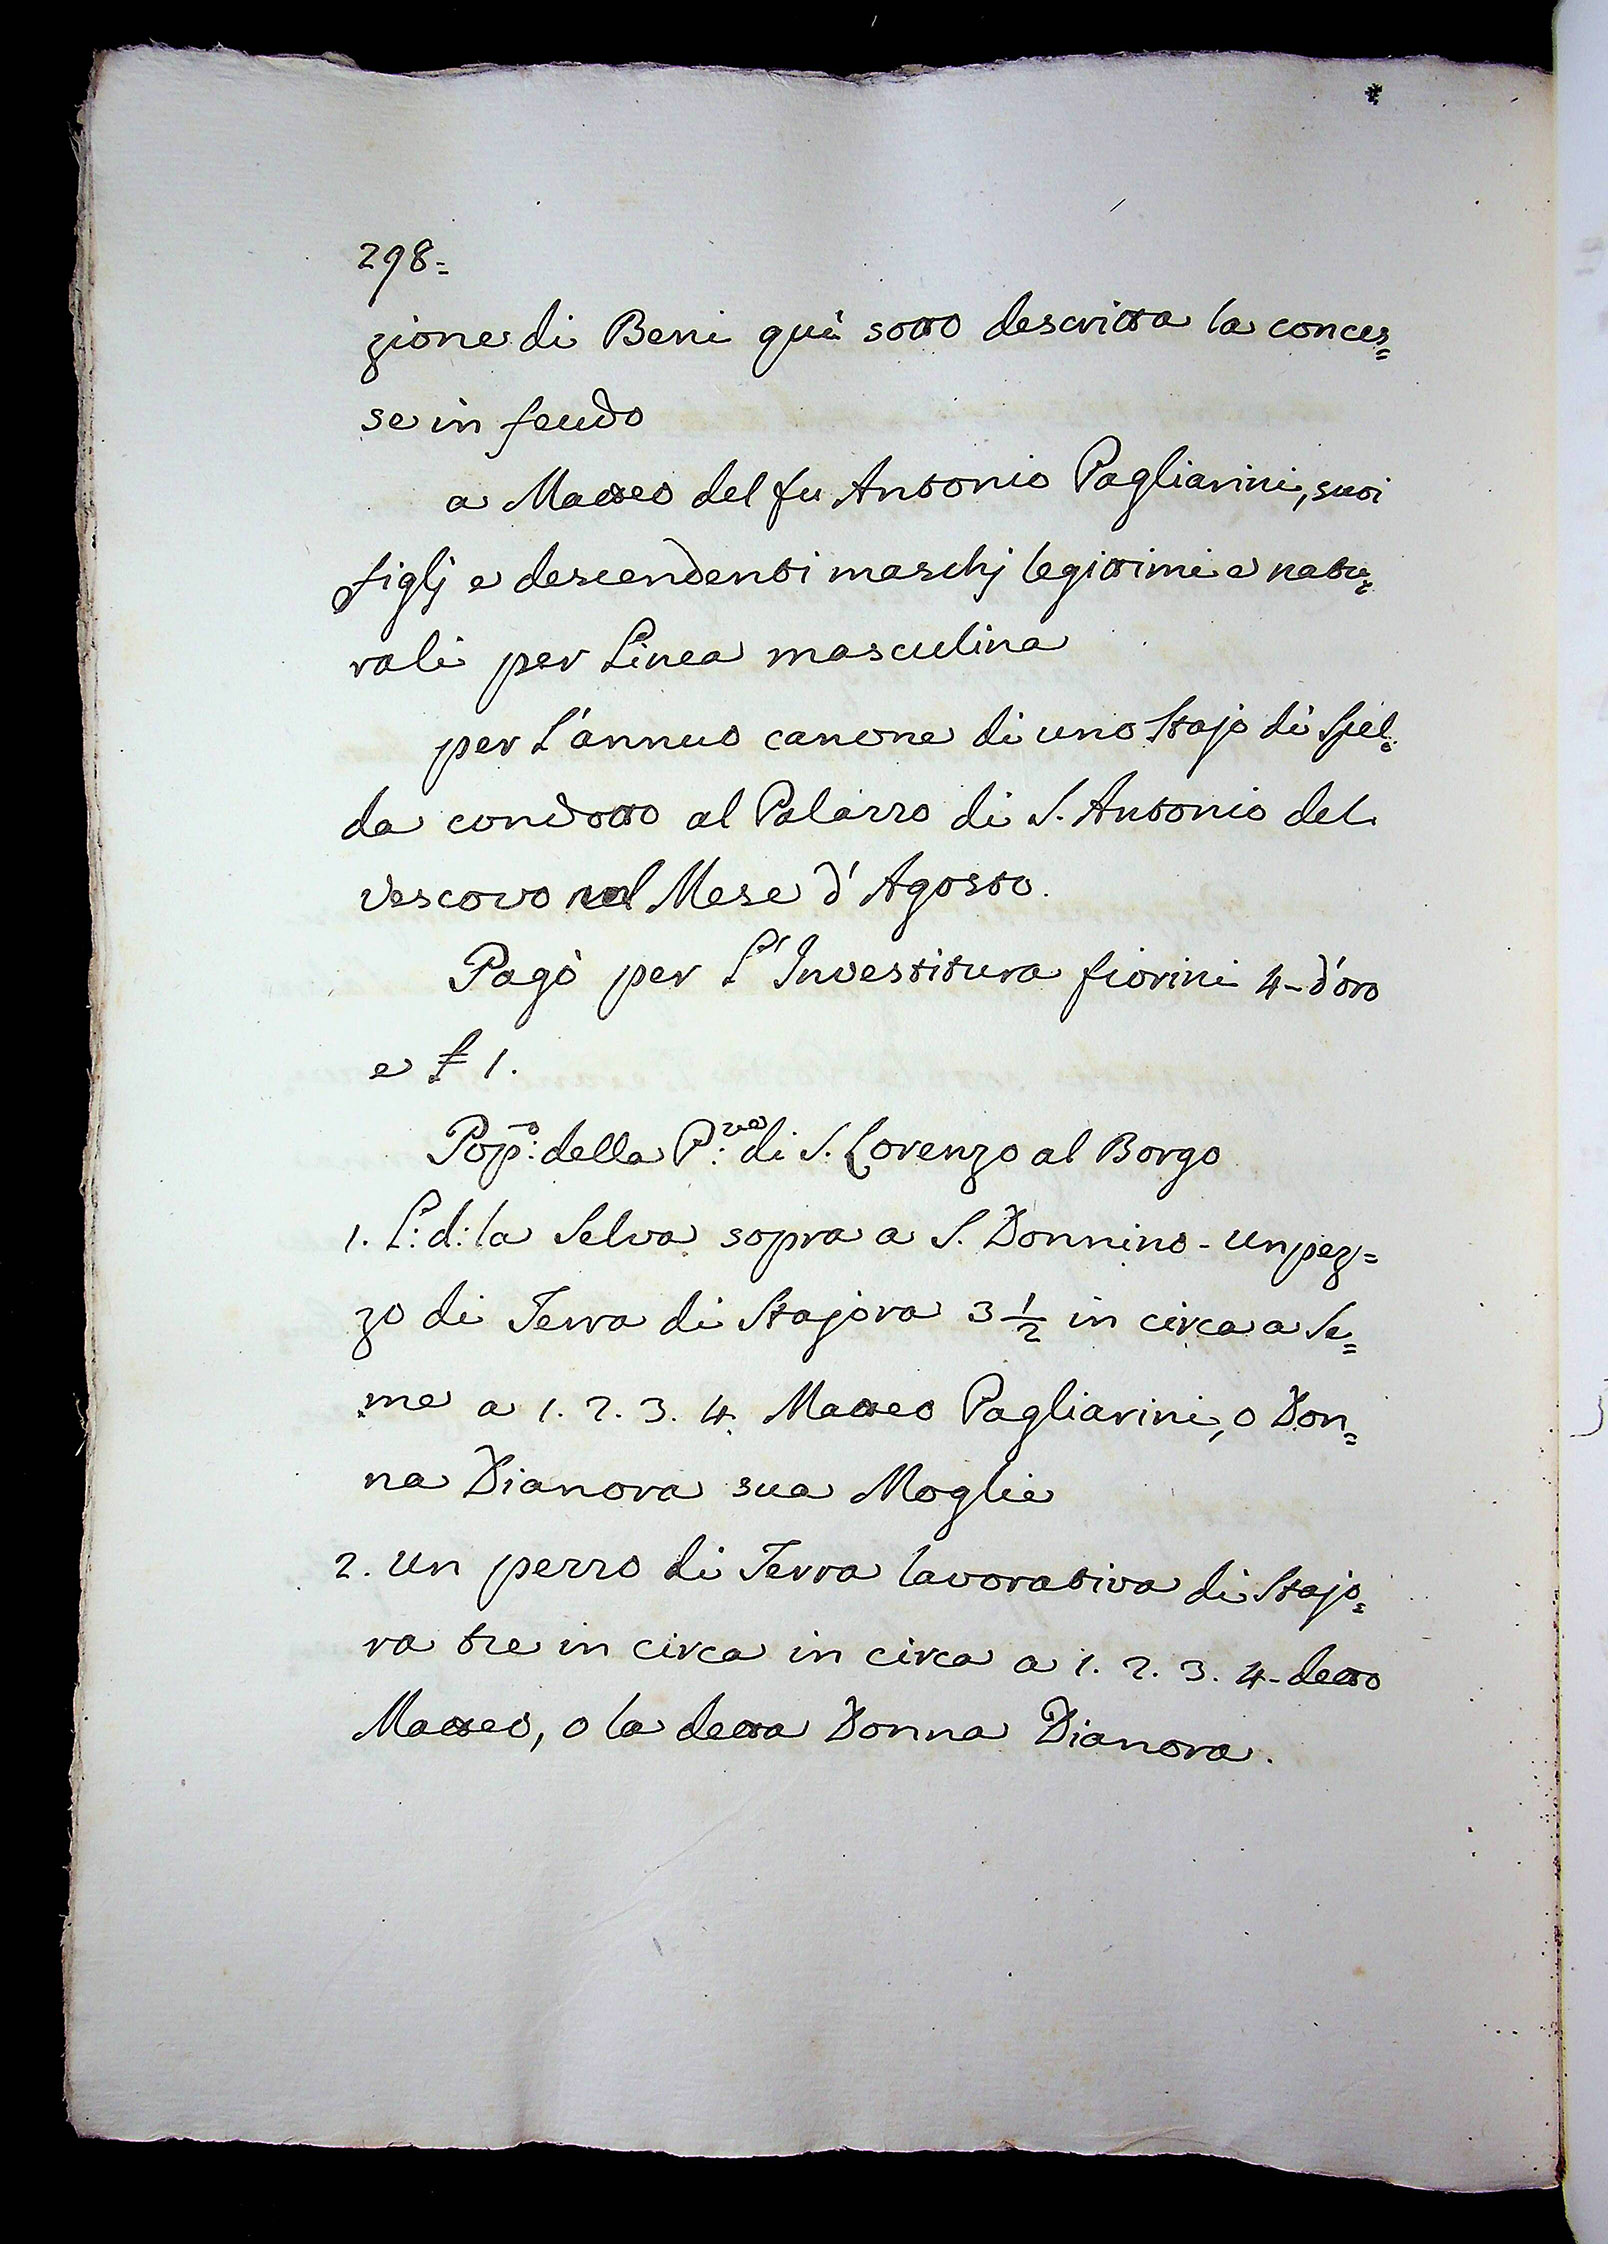 298=
zione di Beni quì sotto descritta la conces=
se in feudo
a Matteo del fu Antonio Pagliarini, suoi
figlj e descendenti maschj legittimi e natu=
rali per Linea masculina
per L'annuo canone di uno Stajo di Spel=
da condotto al Palazzo di S. Antonio del
Vescovo nel Mese d'Agosto.
Pagò per L'Investitura fiorini 4- d'oro
e £ 1.
Pop:o della P:ve di S. Lorenzo al Borgo
1. L: d: la Selva sopra a S. Donnino - un pez=
zo di Terra di Stajora 3 1/2 in circa a Se=
me a 1. 2. 3. 4. Matteo Pagliarini, o Don=
na Dianora sua Moglie
2. un pezzo di Terra lavorativa di Stajo=
ra tre in circa in circa a 1. 2. 3. 4- detto
Matteo, o la detta Donna Dianora.